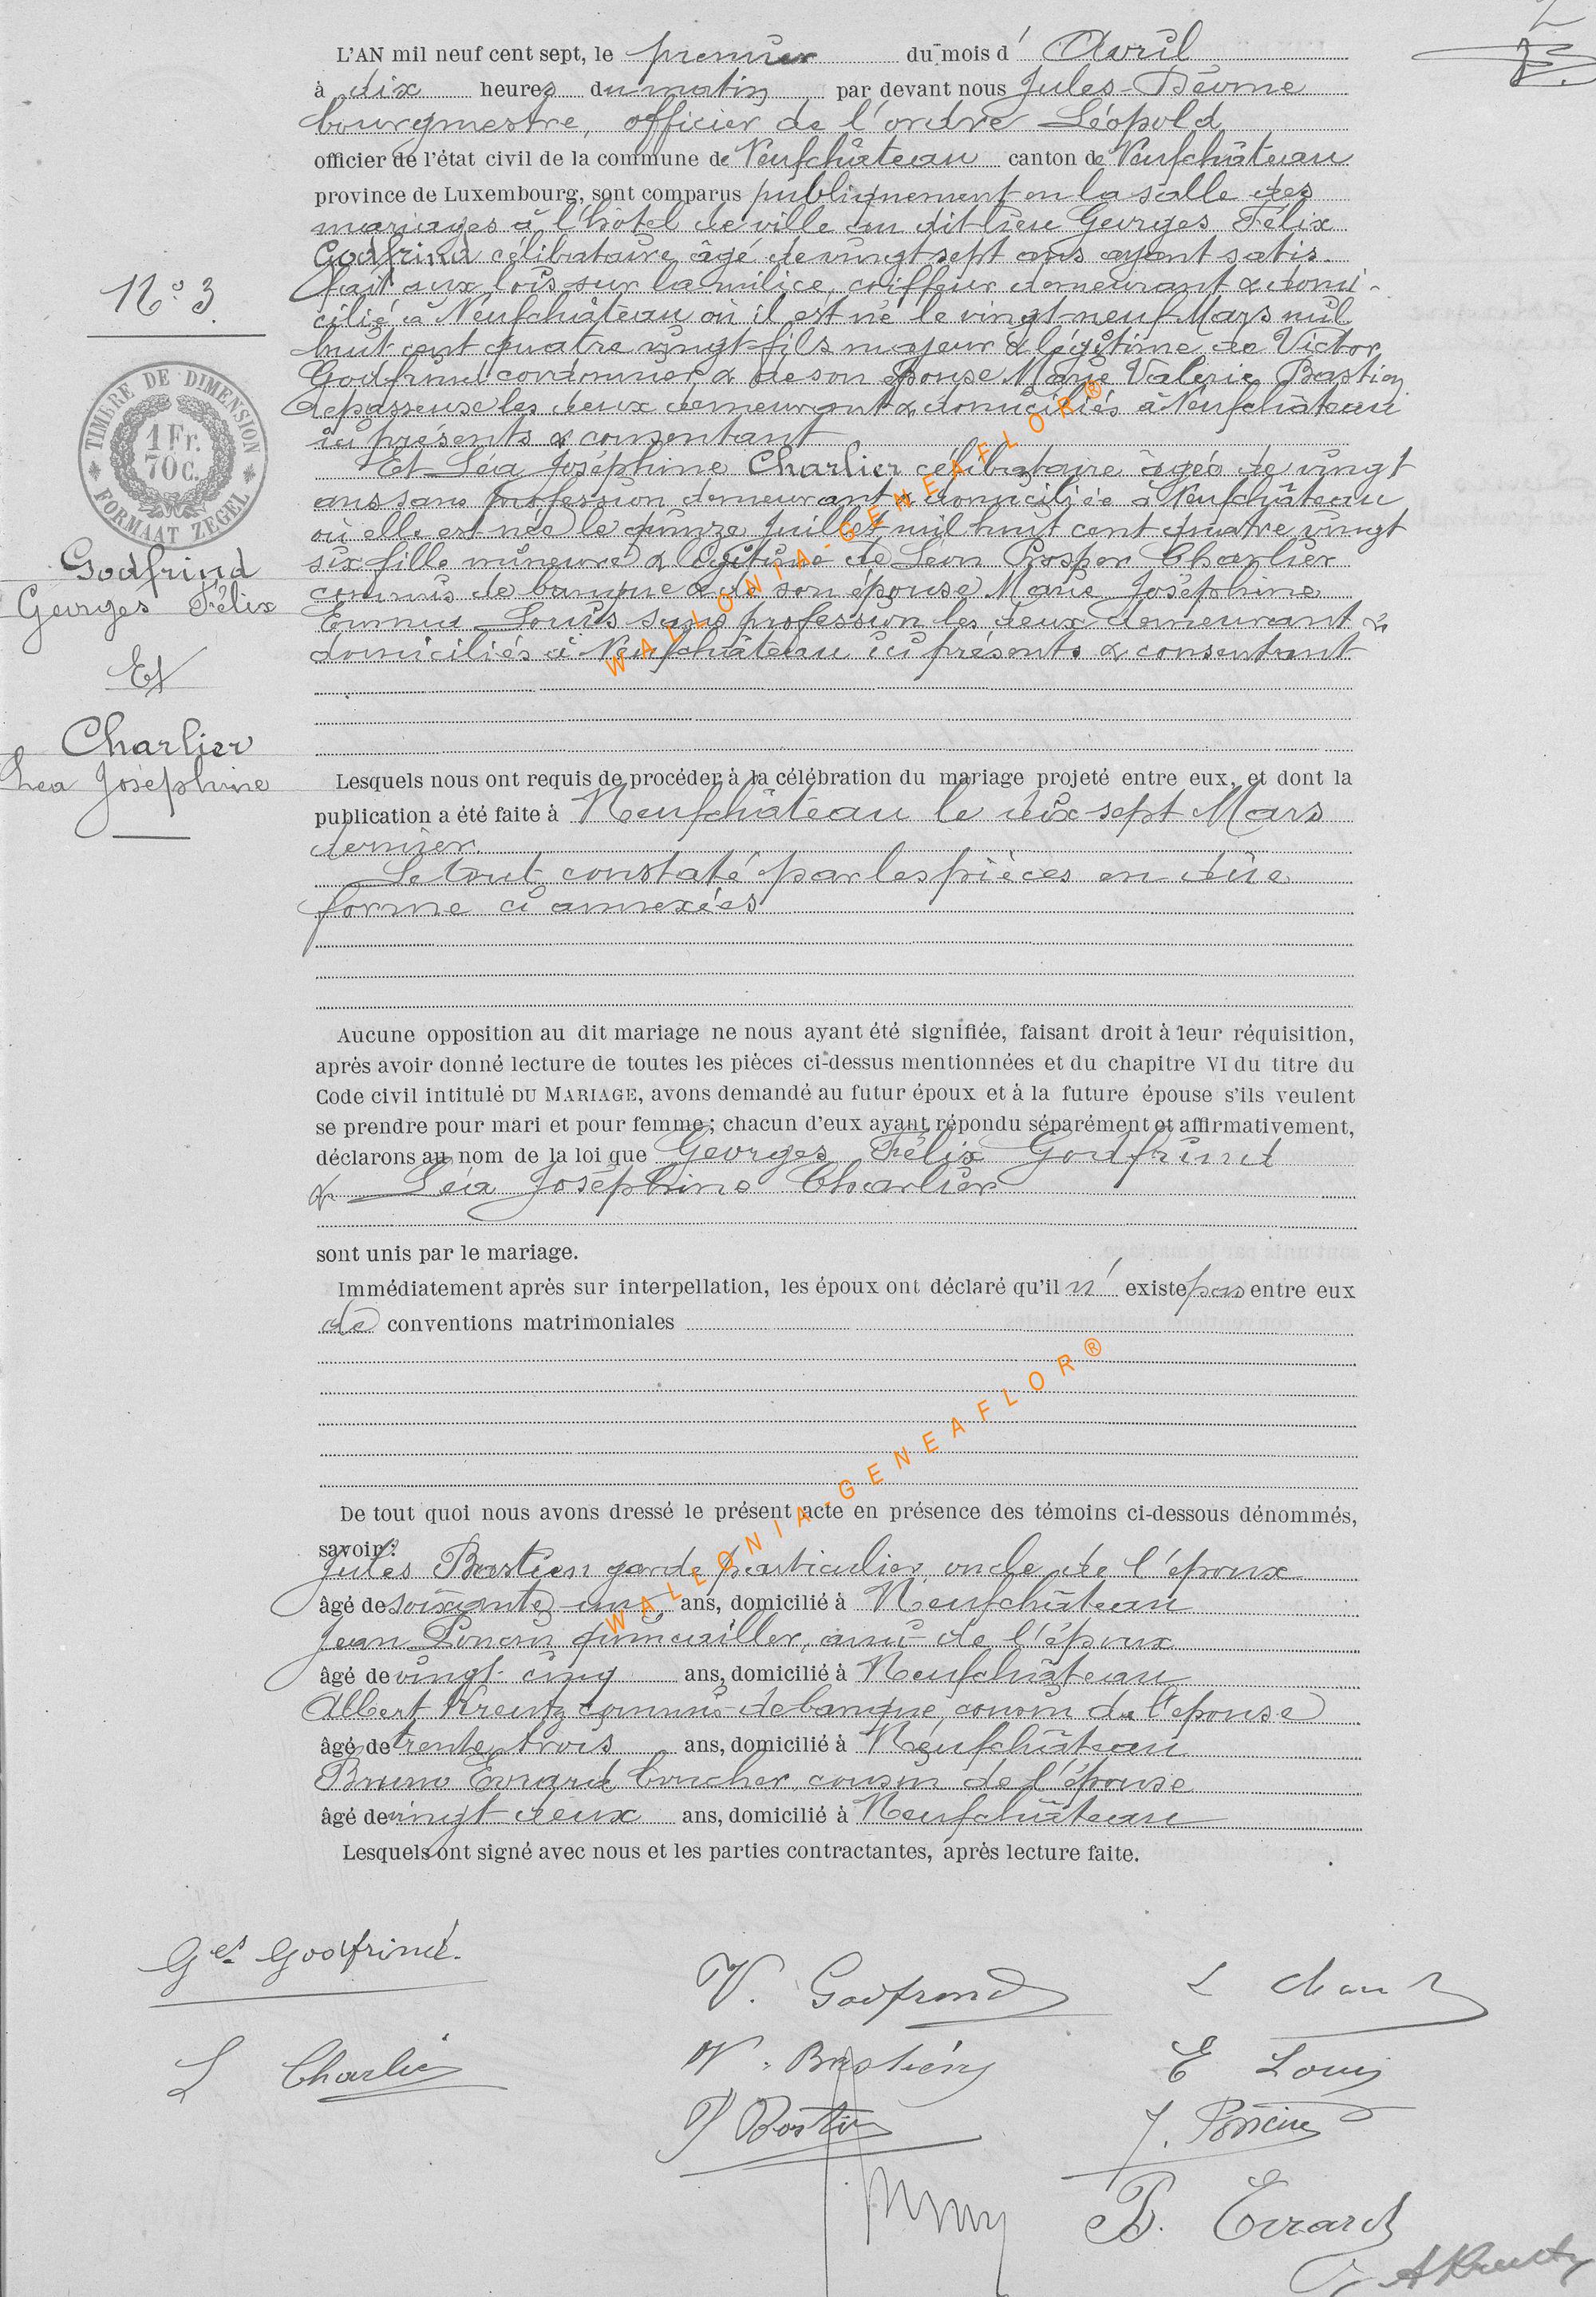 L'AN mil neuf cent sept, le premier du mois d' Avril
à dix heures du matin par devant nous Jules
bourgmestre, officier de l'ordre Léopold
officier de l'état civil de la commune de Neufchâteau canton de Neufchâteau
province de Luxembourg, sont comparus publiquement en la salle des
mariages à l'hôtel de ville au dit lieu Georges Félix
Godfrind célibataire âgé de vingt sept ans ayant satis-
fait aux lois sur la milice, coiffeur demeurant & domi-
cilié à Neufchâteau où il est né le vingt neuf Mars mil
huit cent quatre vingt fils majeur & légitime de Victor
Godfrind cordonnier & de son épouse Marie Valérie Bastien
repasseuse les deux demeurant & domiciliés à Neufchâteau
ici présents & consentant
N° 3
TIMBRE DE DIMENSION
1 Fr. 70c.
FORMAAT ZEGEL
Et Léa Joséphine Charlier célibataire âgée de vingt
ans sans profession demeurant & domiciliée à Neufchâteau
où elle est née le quinze Juillet mil huit cent quatre vingt
six fille mineure & légitime de Léon Prosper Charlier
commis de banque & de son épouse Marie Joséphine
Emma Louis sans profession les deux demeurant &
domiciliés à Neufchâteau ici présents & consentant
Godfrind
Georges Félix
Et
Charlier
Lea Joséphine
Lesquels nous ont requis de procéder à la célébration du mariage projeté entre eux, et dont la
publication a été faite à Neufchâteau le dix-sept Mars
dernier.
Le tout constaté par les pièces en dûe
forme ci annexées
Aucune opposition au dit mariage ne nous ayant été signifiée, faisant droit à leur réquisition,
après avoir donné lecture de toutes les pièces ci-dessus mentionnées et du chapitre VI du titre du
Code civil intitulé DU MARIAGE, avons demandé au futur époux et à la future épouse s'ils veulent
se prendre pour mari et pour femme; chacun d'eux ayant répondu séparément et affirmativement,
déclarons au nom de la loi que Georges Félix Godfrind
& Léa Joséphine Charlier
sont unis par le mariage.
Immédiatement après sur interpellation, les époux ont déclaré qu'il n' existe pas entre eux
de conventions matrimoniales
De tout quoi nous avons dressé le présent acte en présence des témoins ci-dessous dénommés,
savoir:
Jules Bastien garde particulier, oncle de l'époux
âgé de soixante un ans, domicilié à Neufchâteau
Jean Poncin quincailler, ami de l'époux
âgé de vingt-cinq ans, domicilié à Neufchâteau
Albert Kreutz commis de banque, cousin de l'épouse
âgé de trente trois ans, domicilié à Neufchâteau
Bruno Evrard boucher, cousin de l'épouse
âgé de vingt-deux ans, domicilié à Neufchâteau
Lesquels ont signé avec nous et les parties contractantes, après lecture faite.
Ges Godfrind.
V. Godfrind
L
L Charlier
V. Bastien
E Louis
J Bastien
J. Poncin
B. Evrard
A Kreutz
WALLONIA-GENEAFLOR®
WALLONIA-GENEAFLOR®